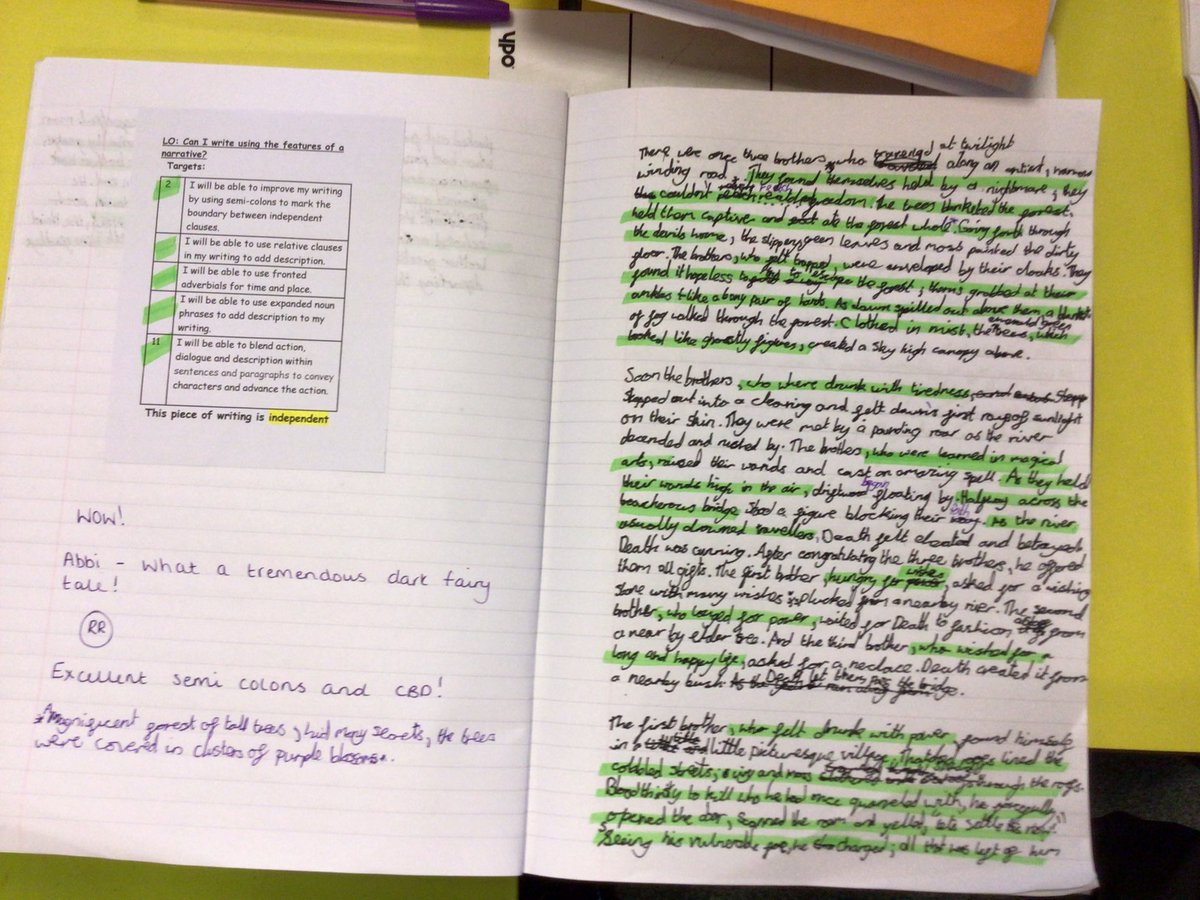 ypo.
LO: Can I write using the features of a
narrative?
Targets:
2
I will be able to improve my writing
by using semi-colons to mark the
boundary between independent
clauses.
I will be able to use relative clauses
in my writing to add description.
I will be able to use fronted
adverbials for time and place.
I will be able to use expanded noun
phrases to add description to my
writing.
11
I will be able to blend action,
dialogue and description within
sentences and paragraphs to convey
characters and advance the action.
This piece of writing is independent
WOW!
Abbi - What a tremendous dark fairy
tale!
RR
Excellent semi colons and CBD!
Amagnificent forest of tall trees, hid many secrets, the trees
were covered in clusters of purple blossoms.
There were once three brothers, who at twilight
along an antient, narrow
winding road. They found themselves held by a nightmare, they
couldn't reach freedom. The trees blanketed the forest,
held them captive and ate the forest whole. Going forth through
the devils home, the slippery, green leaves and moss painted the dirty
floor. The brothers, who felt trapped, were enveloped by their cloaks. They
found it hopeless to escape the forest; thorns grabbed at their
ankles like a bony pair of hands. As dawn spilled out above them, a blanket
of fog walked through the forest. Clothed in mist, the trees, which
looked like ghostly figures, created a sky high canopy above.
Soon the brothers, who where drunk with tiredness,
stepped out into a clearing and felt dawn's first rays of sunlight
on their skin. They were met by a pounding roar as the river
decended and rushed by. The brothers, who were learned in magical
arts, raised their wands and cast an amazing spell. As they held
their wands high in the air, driftwood began floating by. Halfway across the
treacherous bridge stood a figure blocking their path. As the river
usually drowned travellers, Death felt cheated and betrayed.
Death was cunning. After congratulating the three brothers, he offered
them all gifts. The first brother, hungry for wishes, asked for a wishing
stone with many wishes plucked from a nearby river. The second
brother, who longed for power, waited for Death to fashion from
a near by elder tree. And the third brother, who wished for a
long and happy life, asked for a necklace. Death created it from
a nearby bush. Death let them pass the bridge.
The first brother, who felt drunk with power, found himself
in a little picturesque village. lined the
cobbled streets; ivy and moss through the roofs.
Bloodthirsty to kill who he had once quarreled with, he forcefully
opened the door, scanned the room and yelled, lets settle this now!"
Seeing his vulnerable foe, he charged; all that was left of him